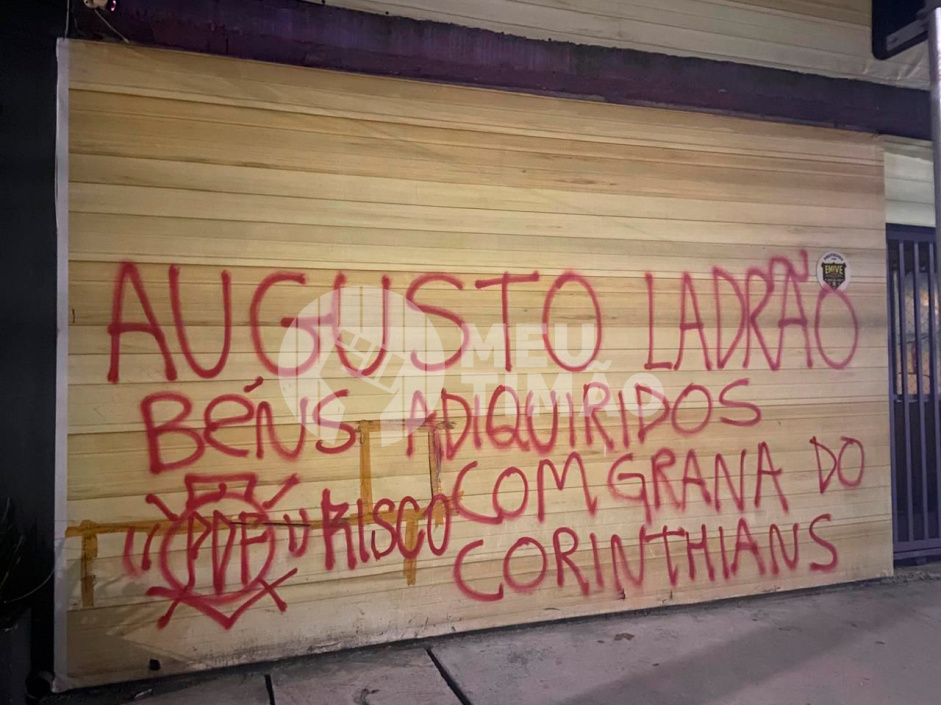 AUGUSTO LADRÃO
BéNS ADIQUIRIDOS
COM GRANA DO
"PDF" RISCO
CORINTHIANS
MEU
TIMÃO
EMIVE